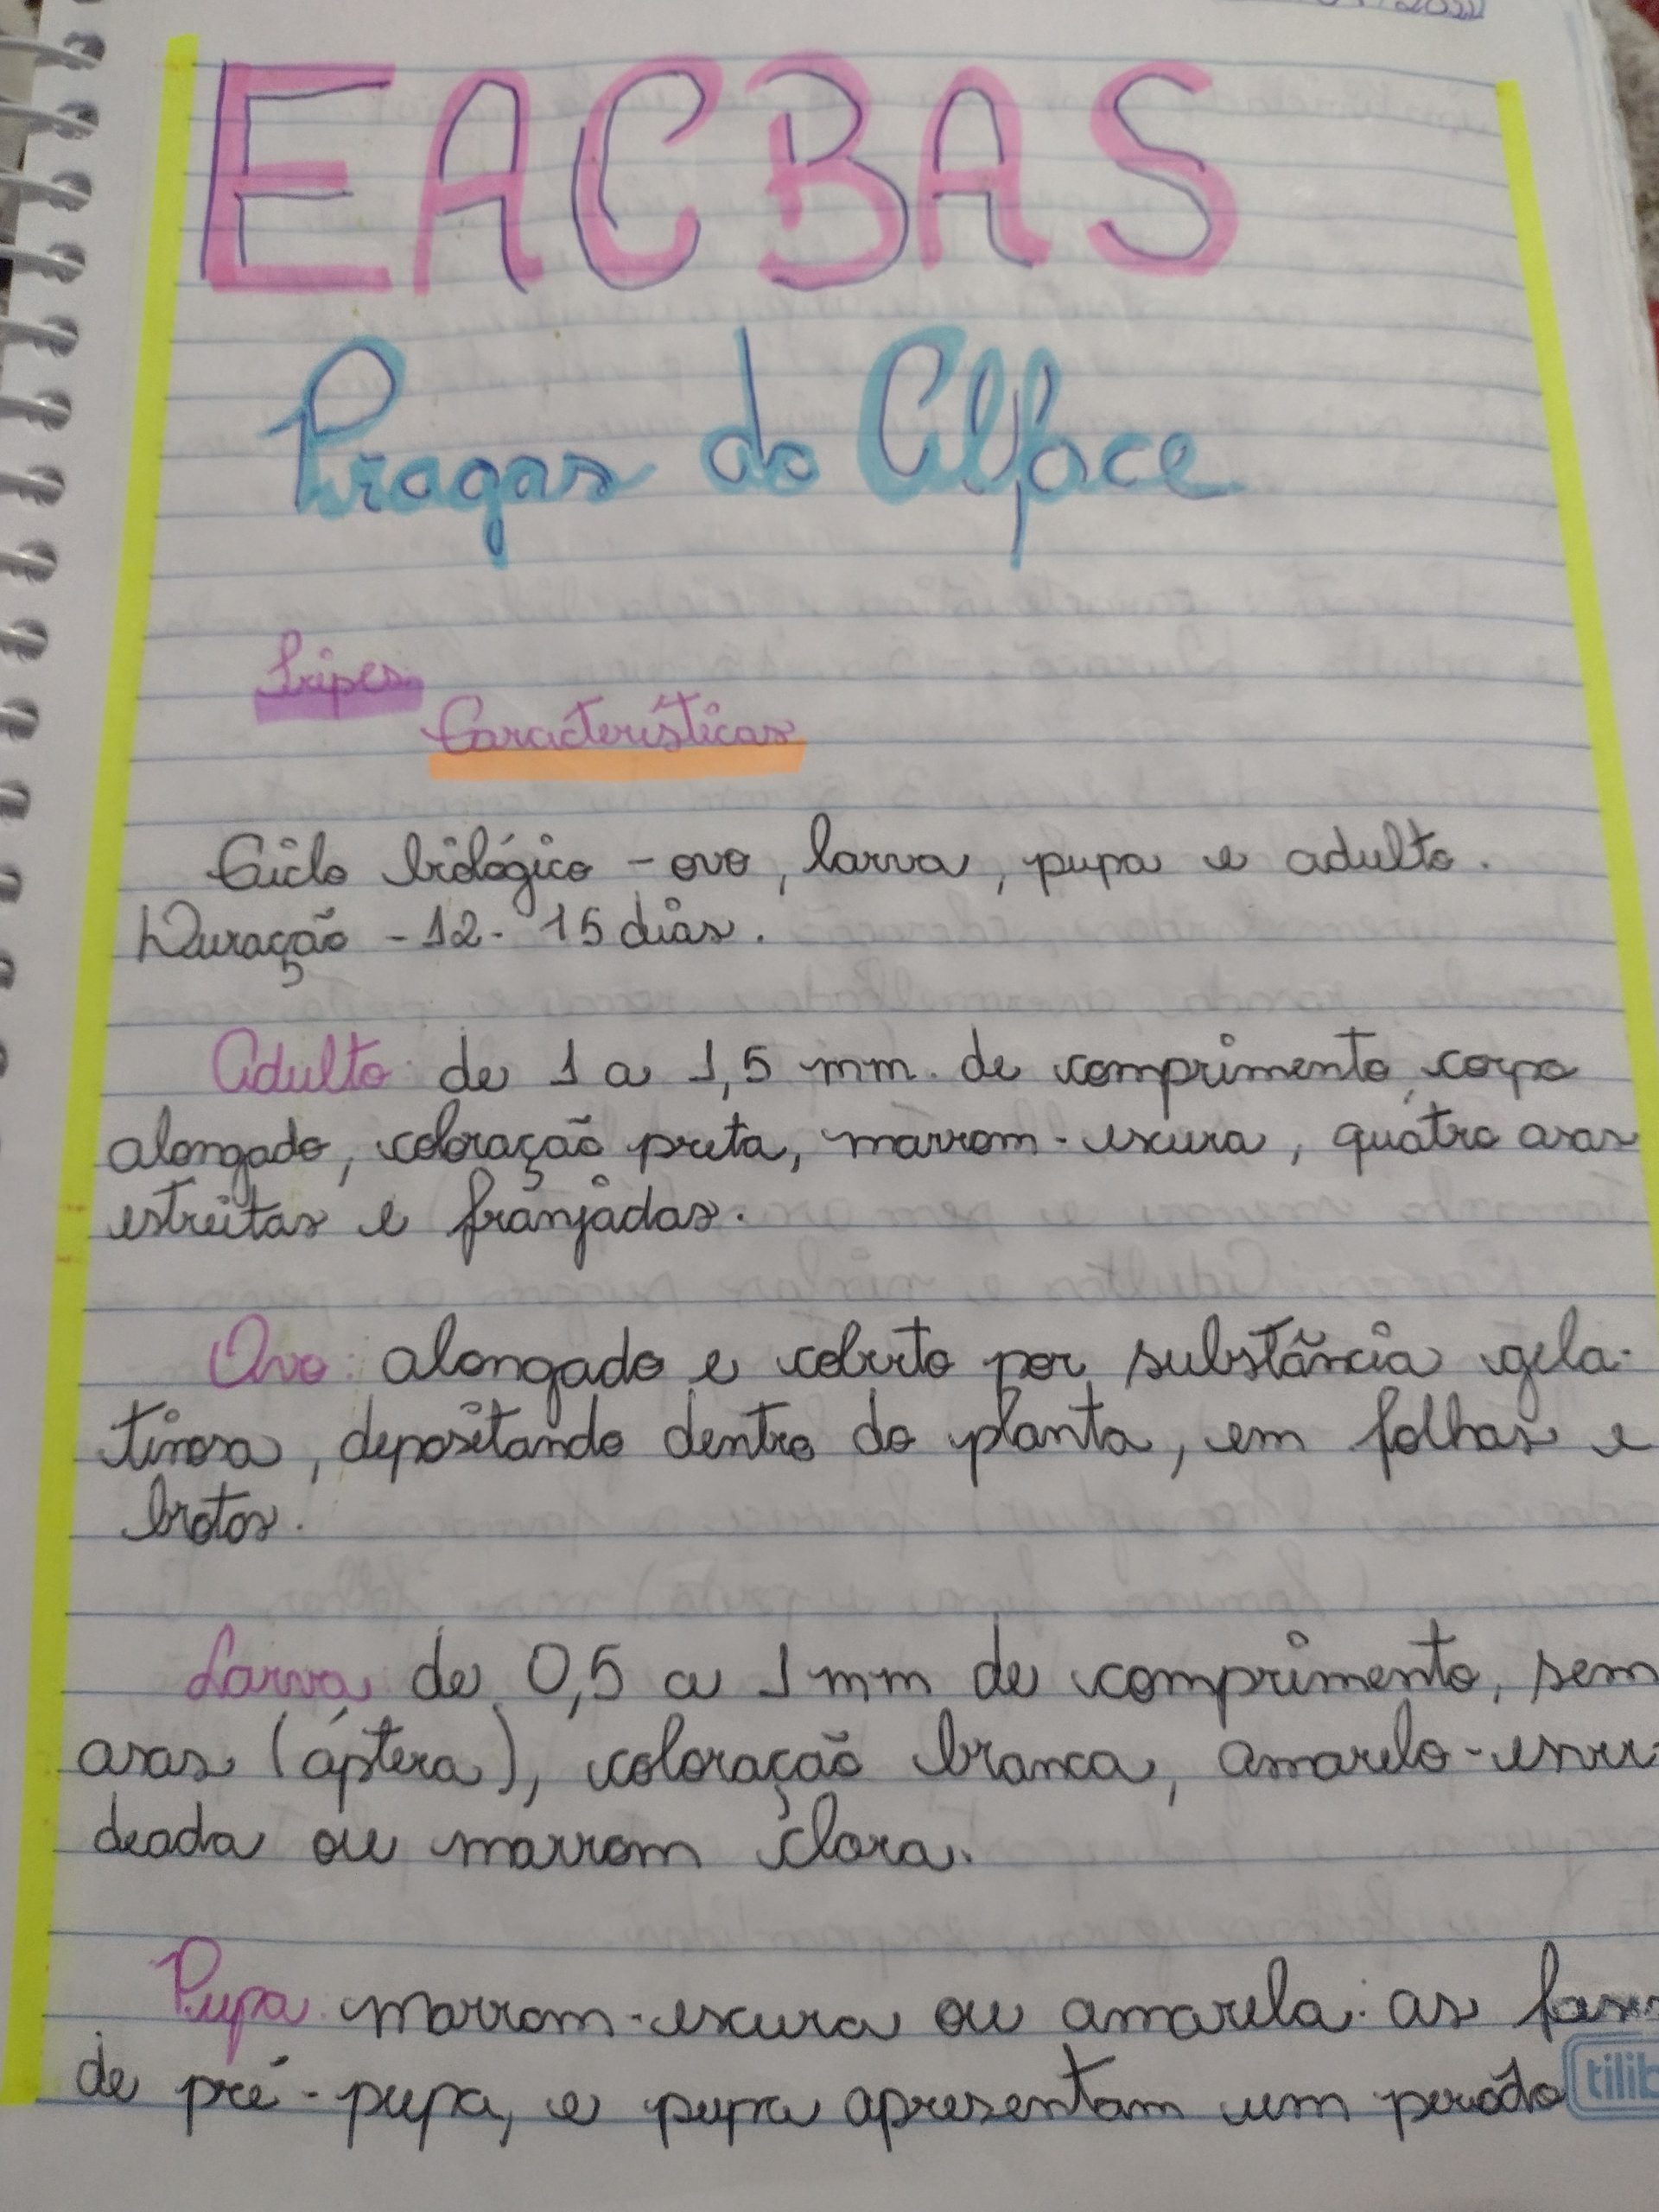 EACBAS
Pragas do Alface
Tripes
Características
Ciclo biológico - ovo, larva, pupa e adulto.
Duração - 12 - 15 dias.
Adulto: de 1 a 1,5 mm. de comprimento, corpo
alongado, coloração preta, marrom-escura, quatro asas
estreitas e franjadas.
Ovo: alongado e coberto por substância gela-
tinosa, depositando dentro da planta, em folhas e
brotos.
Larva: de 0,5 a 1 mm de comprimento, sem
asas (áptera), coloração branca, amarelo-esver-
deada ou marrom clara.
Pupa: marrom-escura ou amarela: as fases
de pré-pupa, e pupa apresentam um período
tilib